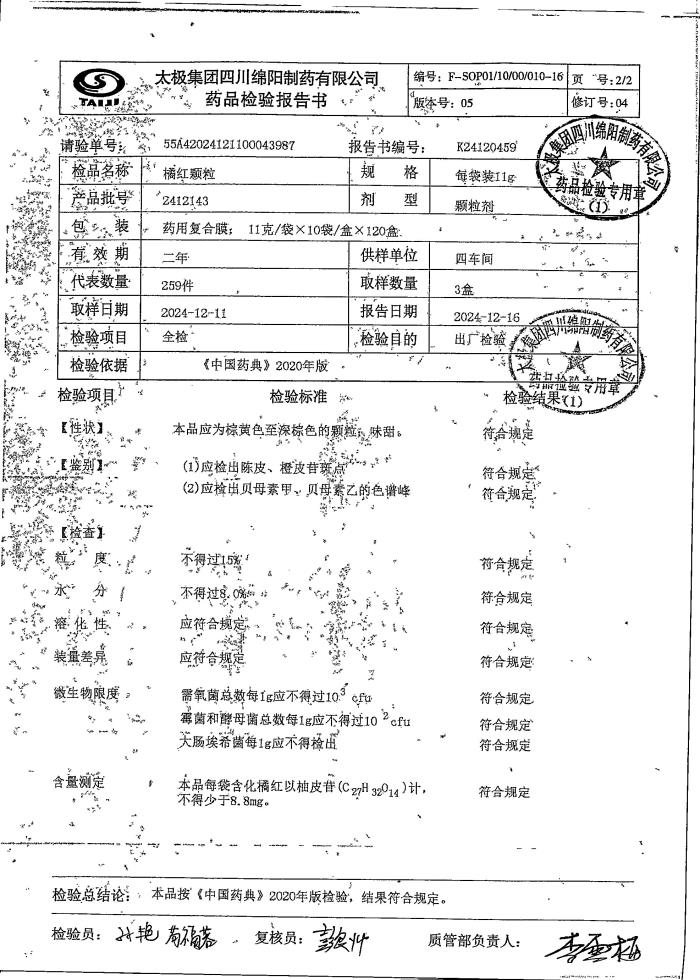 TAIJI
太极集团四川绵阳制药有限公司
药品检验报告书
编号：F-SOP01/10/00/010-16 页 号：2/2
版本号：05 修订号：04
请验单号： 55A42024121100043987 报告书编号： K24120459
检品名称 橘红颗粒 规 格 每袋装11g
产品批号 2412143 剂 型 颗粒剂
包 装 药用复合膜； 11克/袋×10袋/盒×120盒
有 效 期 二年 供样单位 四车间
代表数量 259件 取样数量 3盒
取样日期 2024-12-11 报告日期 2024-12-16
检验项目 全检 检验目的 出厂检验
检验依据 《中国药典》2020年版
太极集团四川绵阳制药有限公司
药品检验专用章
(1)
太极集团四川绵阳制药有限公司
药品检验专用章
(1)
检验项目 检验标准 检验结果
【性状】 本品应为棕黄色至深棕色的颗粒；味甜。 符合规定
【鉴别】 (1)应检出陈皮、橙皮苷斑点 符合规定
(2)应检出贝母素甲、贝母素乙的色谱峰 符合规定
【检查】
粒 度 不得过15% 符合规定
水 分 不得过8.0% 符合规定
溶 化 性 应符合规定 符合规定
装量差异 应符合规定 符合规定
微生物限度 需氧菌总数每1g应不得过10³ cfu 符合规定
霉菌和酵母菌总数每1g应不得过10 ² cfu 符合规定
大肠埃希菌每1g应不得检出 符合规定
含量测定 本品每袋含化橘红以柚皮苷(C₂₇H₃₂O₁₄)计， 符合规定
不得少于8.8mg。
检验总结论： 本品按《中国药典》2020年版检验，结果符合规定。
检验员： 复核员： 质管部负责人：